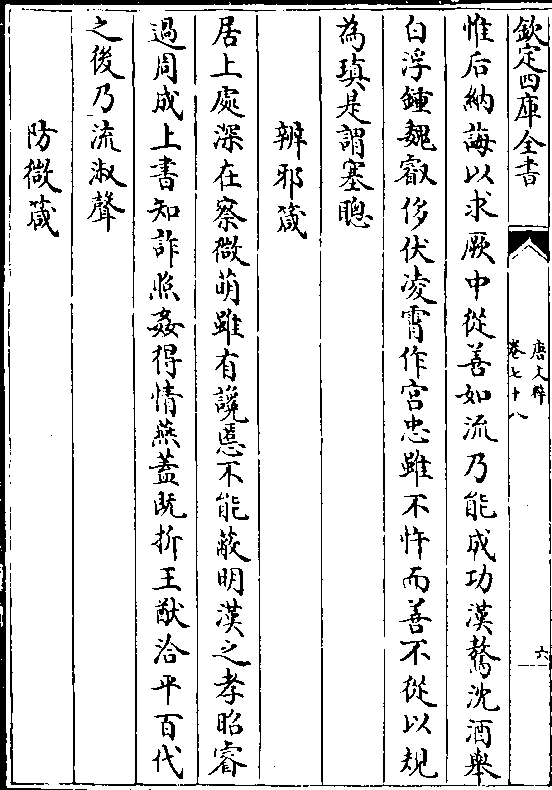 欽定四庫全書
唐文粹
卷七十八
六
惟后納誨以求厥中從善如流乃能成功漢驁沈酒舉
白浮鍾魏叡侈伏凌霄作宫忠雖不忤而善不從以規
為瑱是謂塞聰
辨邪箴
居上處深在察微萌雖有讒慝不能蔽明漢之孝昭睿
過周成上書知詐照姦得情燕蓋既折王猷洽平百代
之後乃流淑聲
防微箴